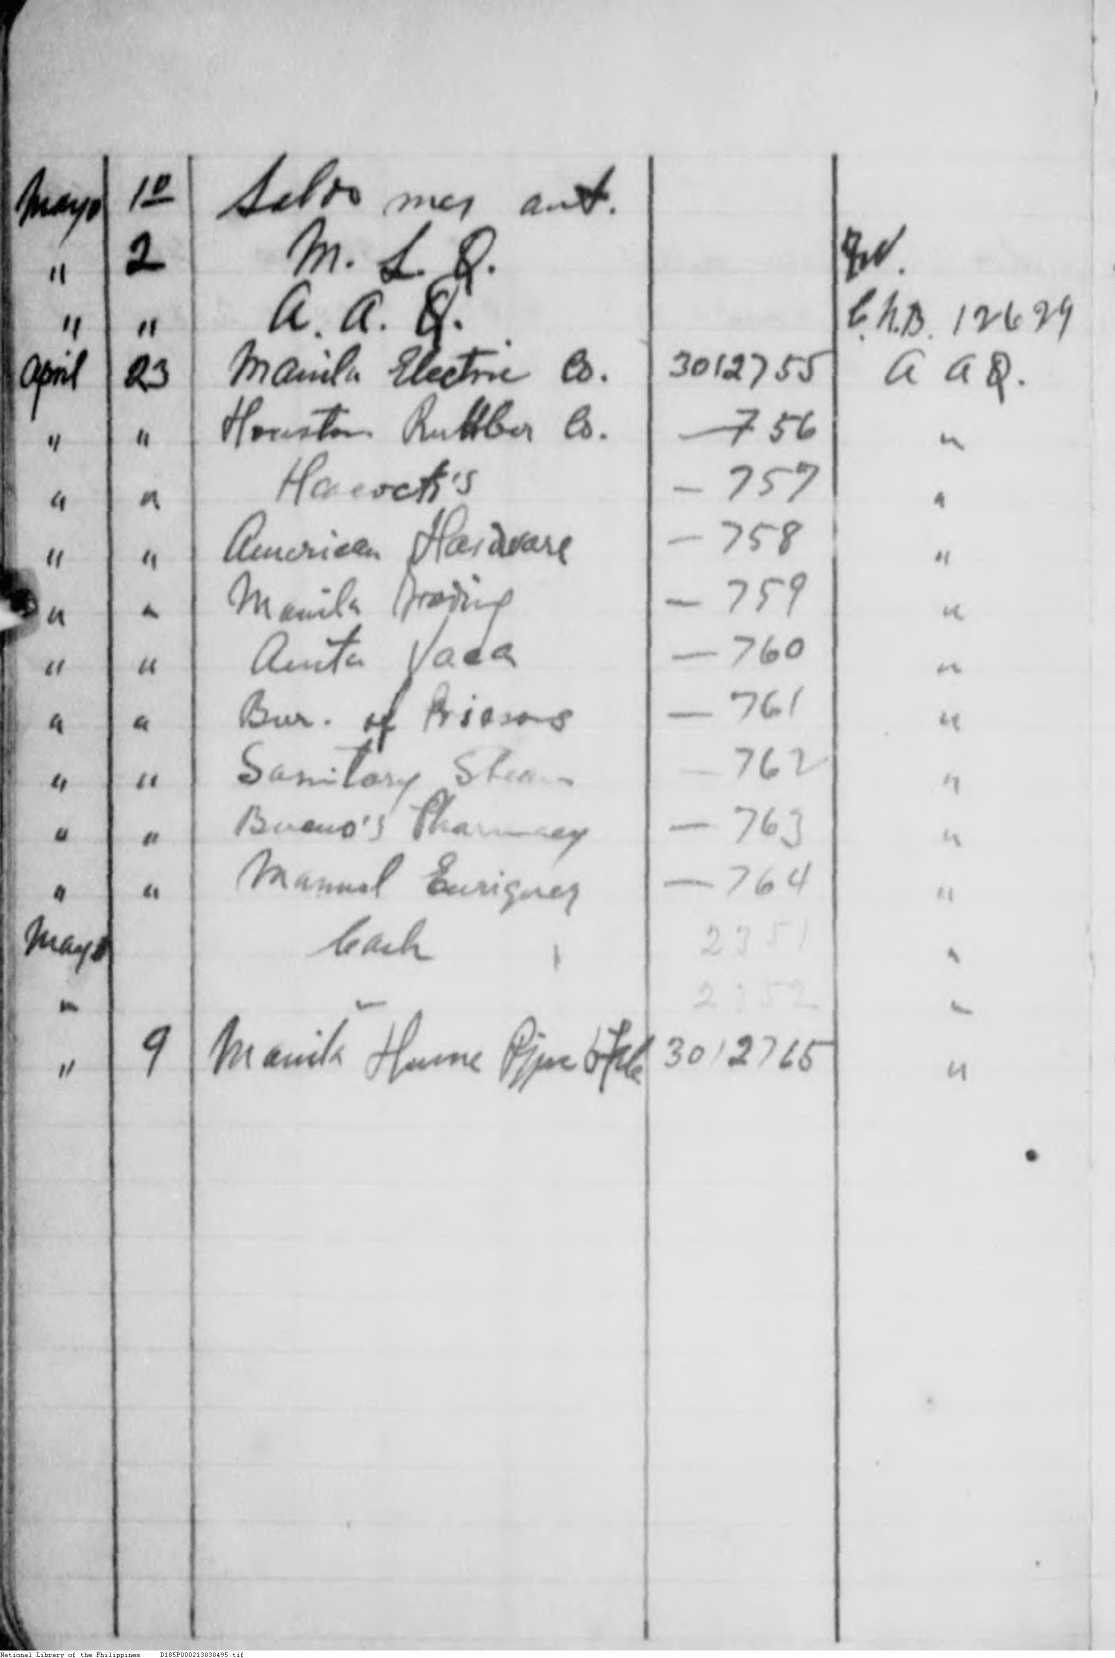 Mayo 1º Saldo mes ant.
" 2 M. L. Q. Fdv.
" " A. A. Q. C.N.B. 12629
April 23 Manila Electric Co. 3012755 A A Q.
" " Houston Rubber Co. — 756 "
" " Heacock's — 757 "
" " American Hardware — 758 "
" " Manila Trading — 759 "
" " Anita Vaca — 760 "
" " Bur. of Prisons — 761 "
" " Sanitary Steam — 762 "
" " Bueno's Pharmacy — 763 "
" " Manuel Enriquez — 764 "
Mayo Cash 2351 "
" " 2352 "
" 9 Manila Hume Pipe 3012765 "
National Library of the Philippines D185P000213038495.tif